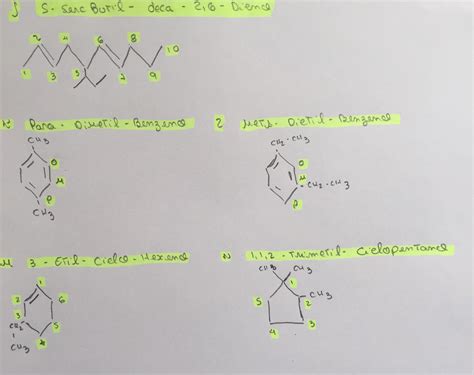 J 5-Sec Butil - deca - 2,6 - Dieno
2 4 6 8 10
1 3 5 7 9
Para - Dimetil - Benzeno
CH₃
O
M
P
CH₃
Meta - Dietil - Benzeno
CH₂-CH₃
O
M
CH₂-CH₃
P
3 - Etil - Ciclo - Hexeno
1
2 6
3 5
CH₂ 4
CH₃
N 1,1,2 - Trimetil - Ciclopentano
CH₃ CH₃
1
5 2 CH₃
4 3